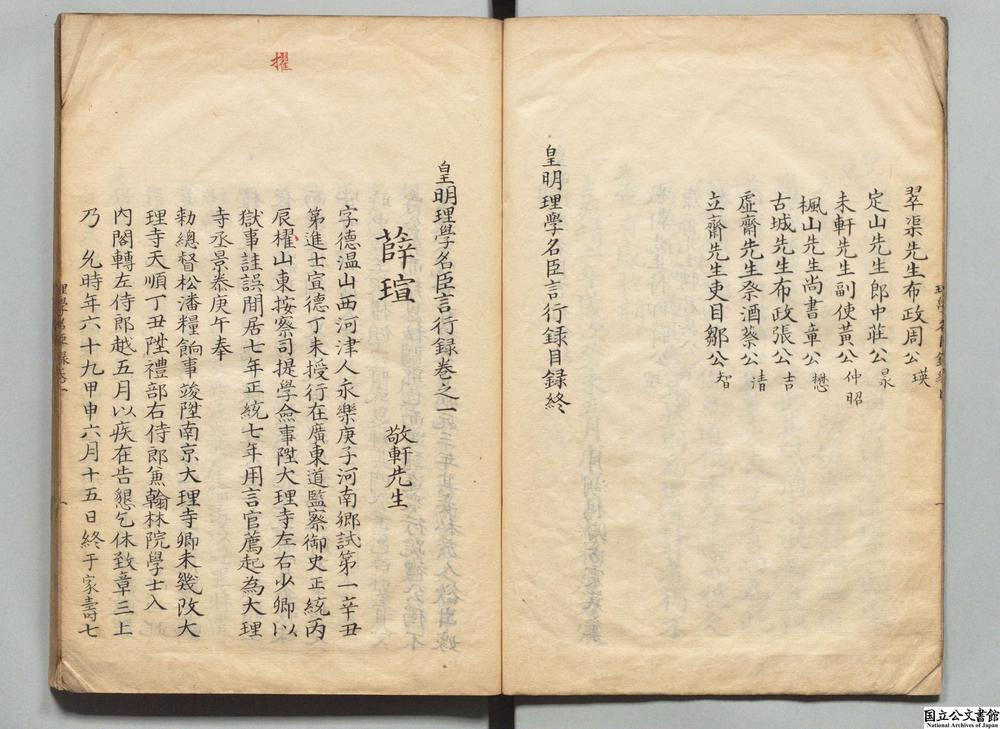 翠渠先生布政周公瑛
定山先生郎中莊公㫤
未軒先生副使黃公仲昭
楓山先生尚書章公懋
古城先生布政張公吉
虛齋先生祭酒蔡公清
立齋先生吏目鄒公智
皇明理學名臣言行録目録終
擢
皇明理學名臣言行録卷之一
薛瑄 敬軒先生
字德温山西河津人永樂庚子河南鄉試第一辛丑
第進士宣德丁未授行在廣東道監察御史正統丙
辰櫂山東按察司提學僉事陞大理寺左右少卿以
獄事詿誤閒居七年正統七年用言官薦起為大理
寺丞景泰庚午奉
勑總督松潘糧餉事竣陞南京大理寺卿未幾改大
理寺天順丁丑陞禮部右侍郎兼翰林院學士入
內閣轉左侍郎越五月以疾在告懇乞休致章三上
乃 允時年六十九甲申六月十五日終于家壽七
国立公文書館
National Archives of Japan